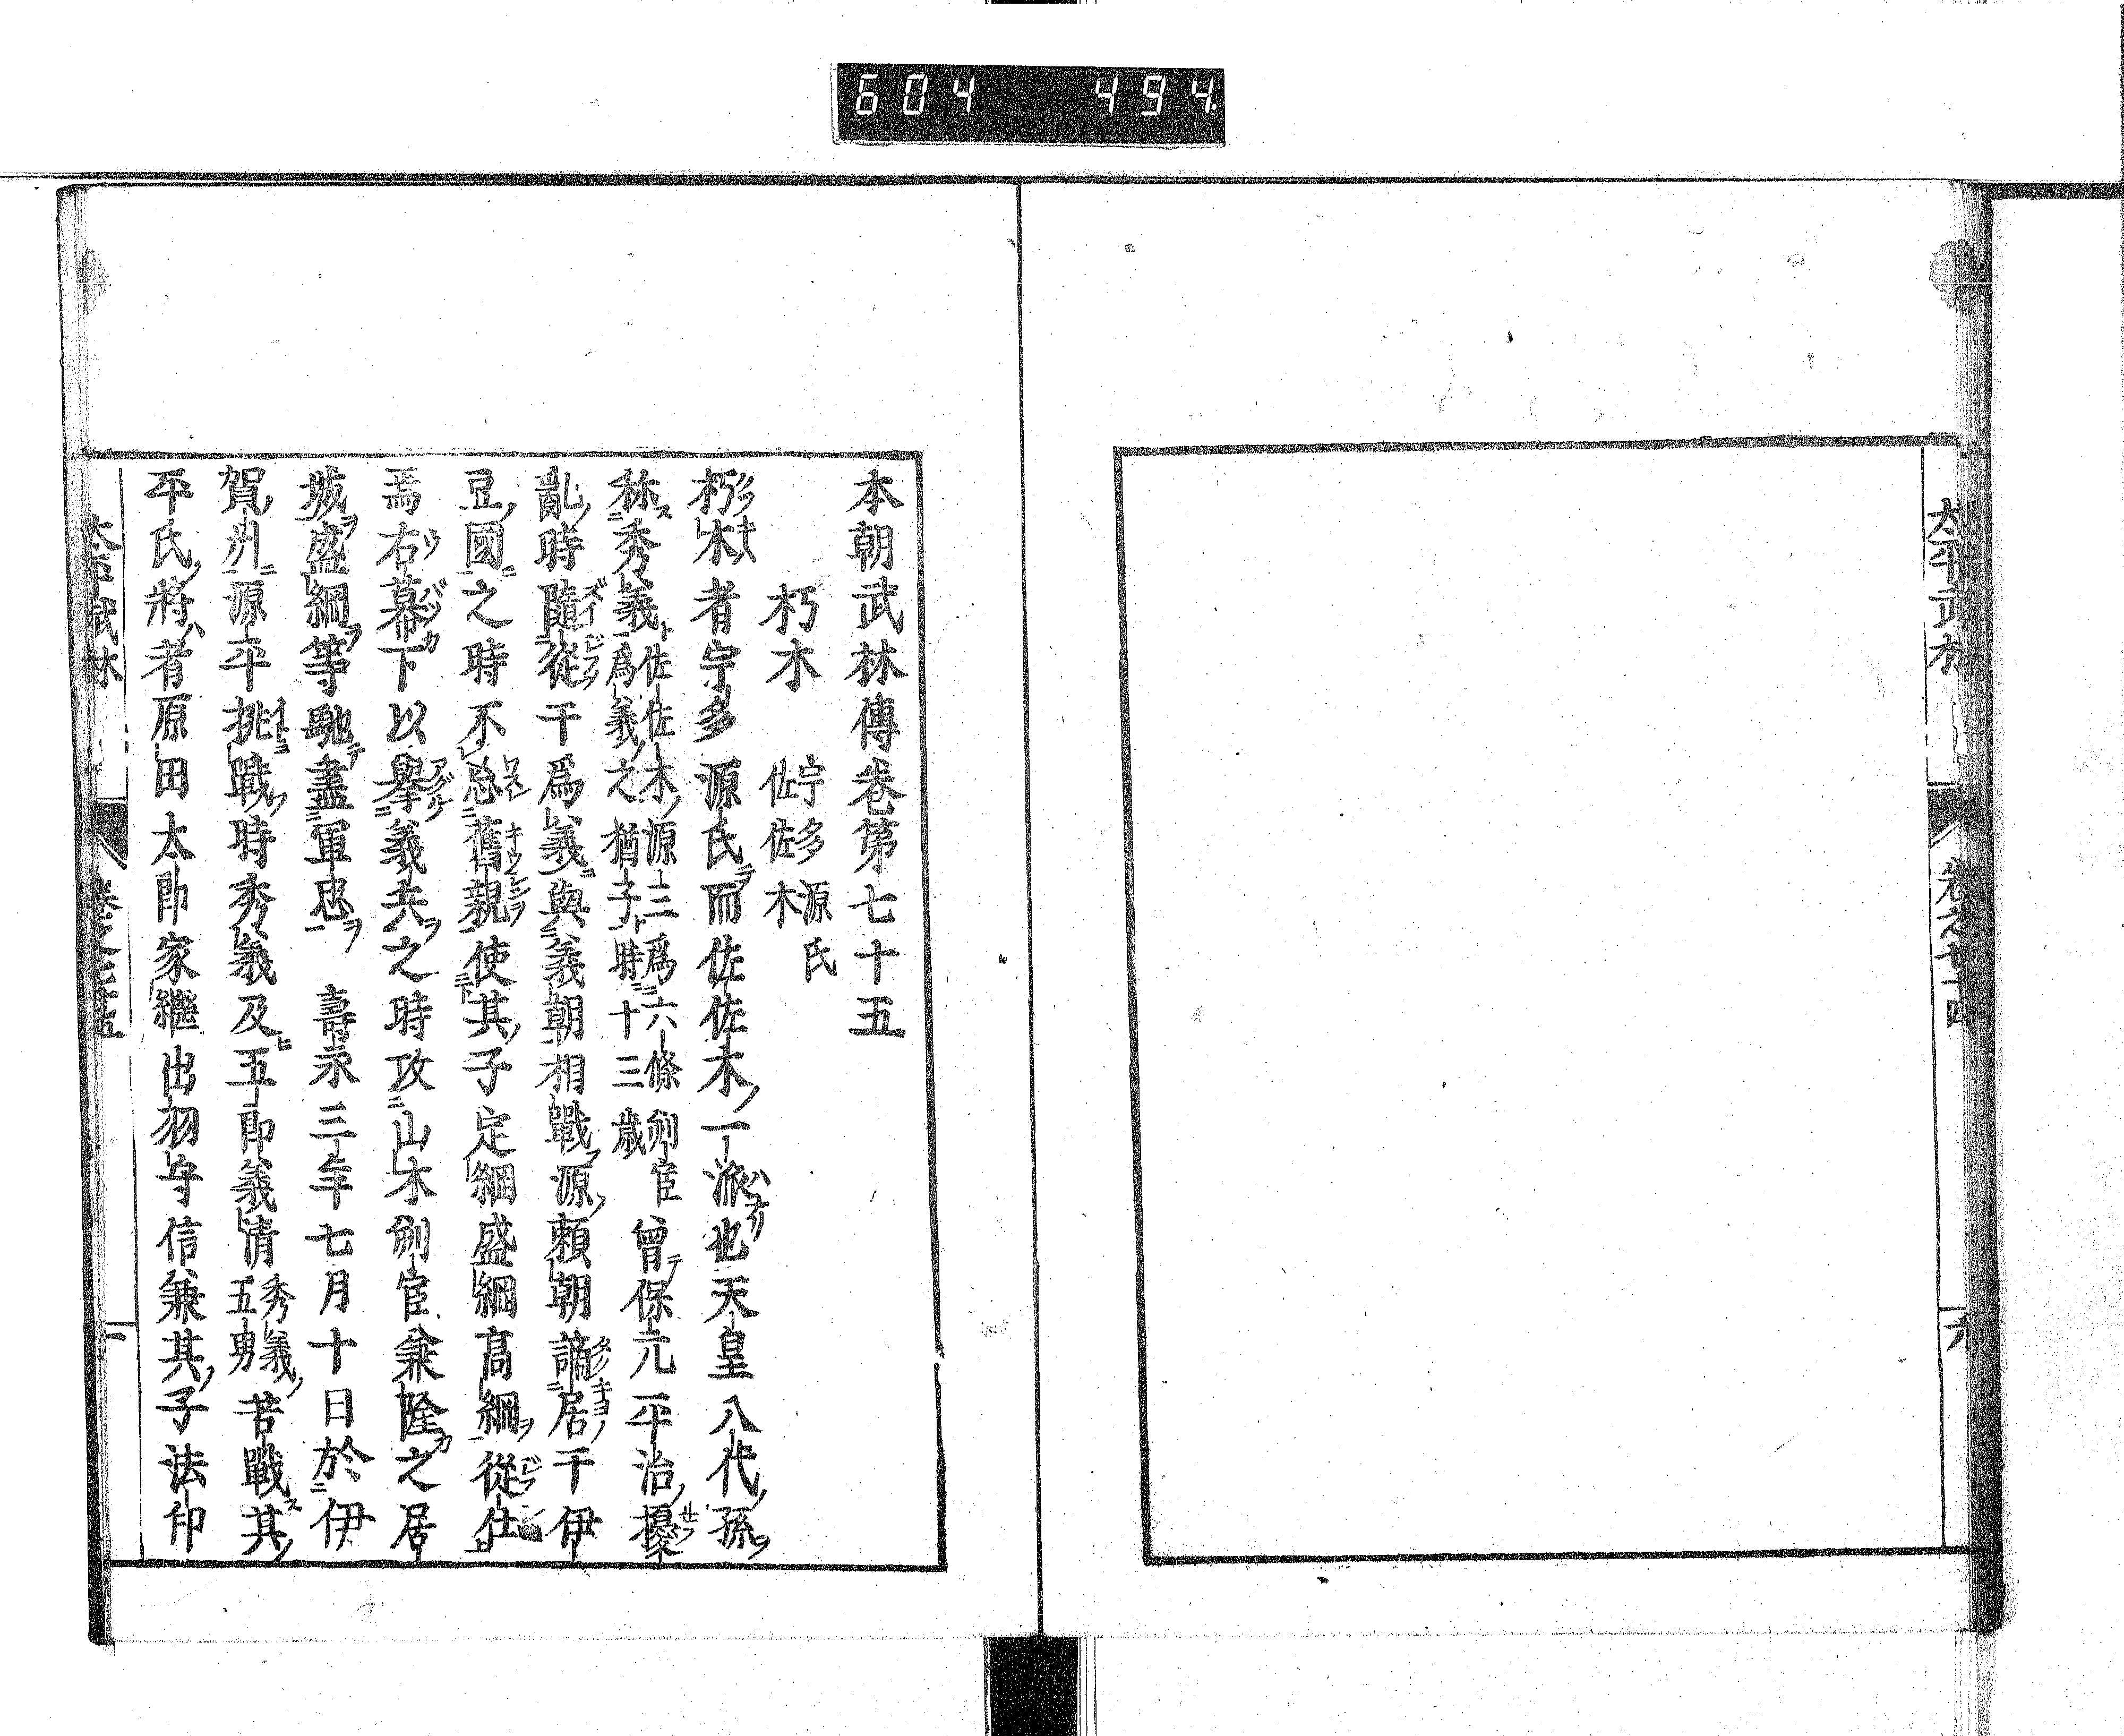 604 494
太平武林 卷之七十四 六
本朝武林傳卷第七十五
朽木 宇多源氏 佐佐木
朽木者宇多源氏而佐佐木一派也天皇八代孫
称秀義佐佐木源三爲六條判官爲義之猶子時十三歳曾保元平治擾
亂時隨從于爲義與義朝相戰源賴朝謫居于伊
豆國之時不忘舊親使其子定綱盛綱高綱從仕
焉右幕下以擧義兵之時攻山木判官兼隆之居
城盛綱等馳盡軍忠 壽永三年七月十日於伊
賀州源平挑戰時秀義及五郎義清秀義五男苦戰其
平氏將者原田太郎家繼出羽守信兼其子法印
太平武林 卷之七十五 一